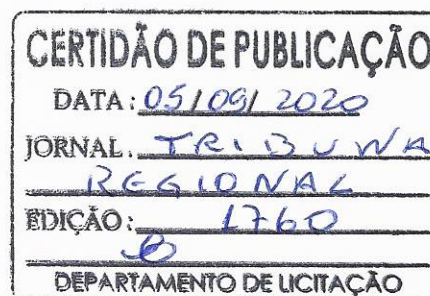 CERTIDÃO DE PUBLICAÇÃO
DATA: 05/09/2020
JORNAL. TRIBUNA
REGIONAL
EDIÇÃO: 1760
DEPARTAMENTO DE LICITAÇÃO